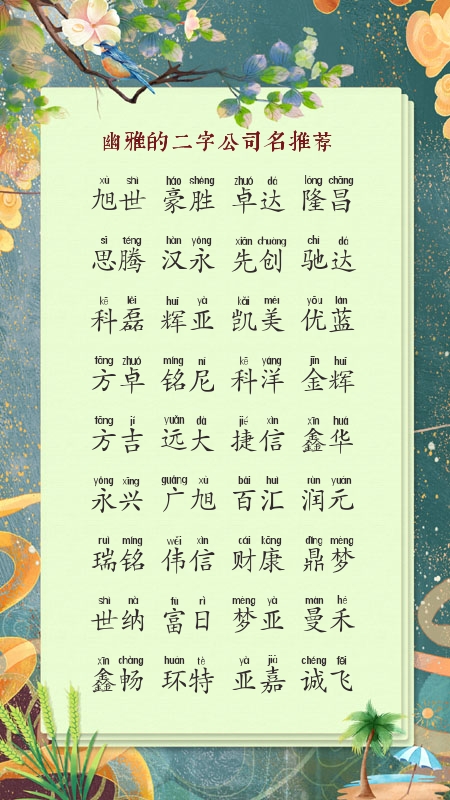 幽雅的二字公司名推荐
xù shì háo shèng zhuó dá lóng chāng
旭世 豪胜 卓达 隆昌
sī téng hàn yǒng xiān chuàng chí dá
思腾 汉永 先创 驰达
kē lěi huī yà kǎi měi yōu lán
科磊 辉亚 凯美 优蓝
fāng zhuó míng ní kē yáng jīn huī
方卓 铭尼 科洋 金辉
fāng jí yuǎn dà jié xìn xīn huá
方吉 远大 捷信 鑫华
yǒng xīng guǎng xù bǎi huì rùn yuán
永兴 广旭 百汇 润元
ruì míng wěi xìn cái kāng dǐng mèng
瑞铭 伟信 财康 鼎梦
shì nà fù rì mèng yà màn hé
世纳 富日 梦亚 曼禾
xīn chàng huán tè yà jiā chéng fēi
鑫畅 环特 亚嘉 诚飞